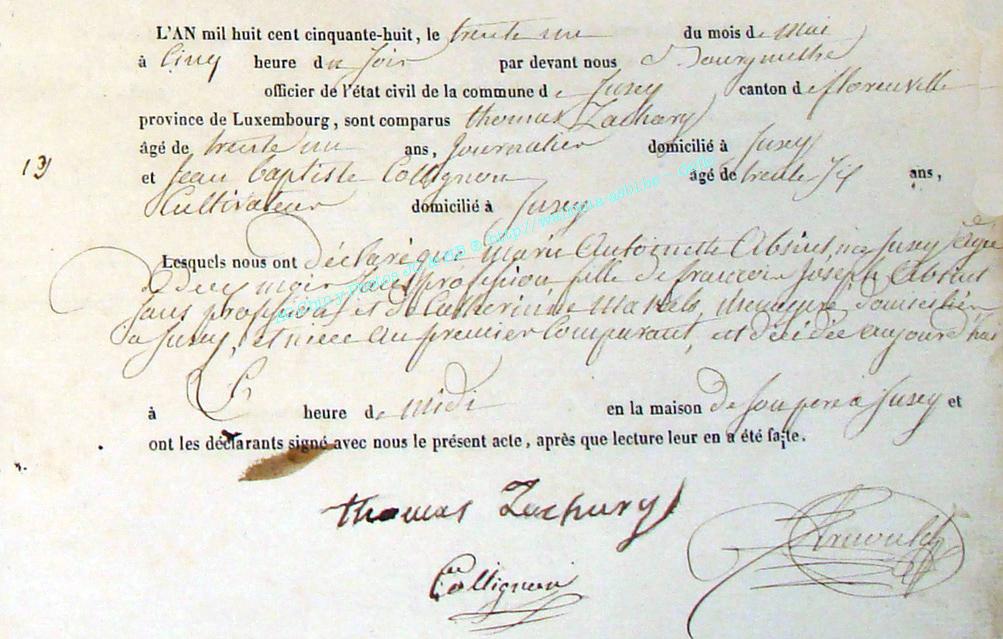 L'AN mil huit cent cinquante-huit, le trente un du mois de Mai
à Cinq heure du Soir par devant nous Bourgmestre
officier de l'état civil de la commune de Jusey canton de florenville
province de Luxembourg, sont comparus thomas Zachary
âgé de trente un ans, journalier domicilié à Jusey
13
et Jean baptiste Collignon âgé de trente six ans,
Cultivateur domicilié à Jusey
Lesquels nous ont déclaré que Marie Antoinette née Jusey âgée
de mois sans profession fille de francois Joseph
sans profession et de Catherinne menagere domiciliés
a Jusey, et niece au premier Comparant, est décédée aujourd'hui
à heure de midi en la maison de son pere a Jusey et
ont les déclarants signé avec nous le présent acte, après que lecture leur en a été faite.
thomas Zachary
Collignon